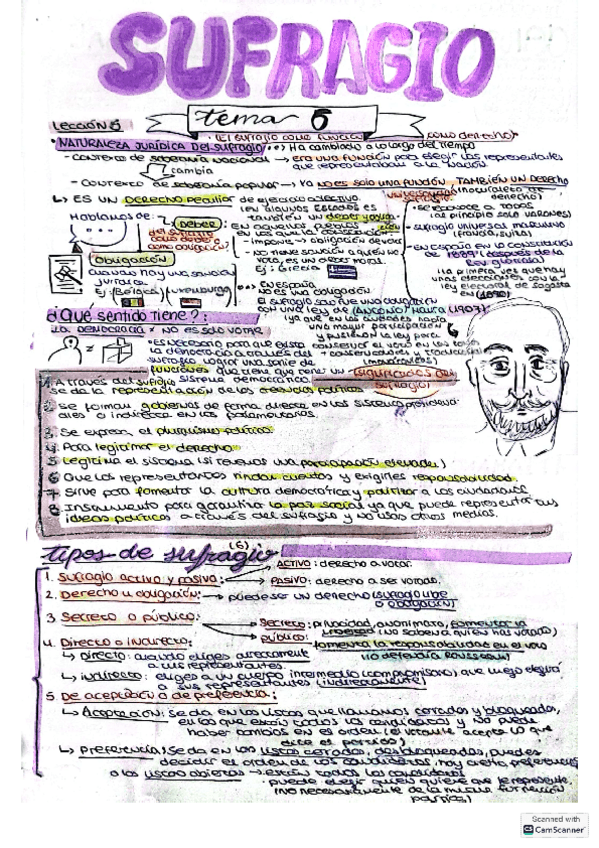 SUFRAGIO
tema 6
LECCIÓN 6
(El sufragio como función y como derecho)
• NATURALEZA JURÍDICA DEL SUFRAGIO: Ha cambiado a lo largo del tiempo
- Contexto de soberanía nacional → era una función para elegir los representantes
que representaban a la nación.
cambia
- Contexto de soberanía popular → Ya no es solo una función, TAMBIÉN UN DERECHO
↳ ES UN DERECHO peculiar de ejercicio colectivo.
Hablamos de:
DEBER
OBLIGACIÓN
Cuando hay una sanción
jurídica.
Ej: (Bélgica) (Luxemburgo)
- Impone → obligación de votar
- No tiene sanción a quien no
vota, es un deber moral.
Ej: Grecia
En España
No es una obligación.
El sufragio solo fue una obligación
con una ley de (Antonio) Maura (1907)
una mayor participación
- se reconoce a TODOS
(al principio solo varones)
- sufragio universal masculino
(Francia, Suiza)
- En España en la constitución
de 1869 (después de la
Rev. gloriosa)
ley electoral de Sagasta
en (1890)
¿Qué sentido tiene?:
LA DEMOCRACIA ≠ NO ES SOLO VOTAR
• Es necesario para que exista
la democracia a través del
sufragio lograr una serie de
funciones que tiene que tener un
(significados del
sufragio)
1. A través del sufragio sistema democrático.
se da la representación de las creencias políticas
2. Se forman gobiernos de forma directa en los sistemas presidencia-
les o indirecta en los parlamentarios.
3. Se expresa el pluralismo político.
4. Para legitimar el derecho
5. Legitima el sistema (si tenemos una participación elevada)
6. Que los representantes rindan cuentas y exigirles responsabilidad.
7. Sirve para fomentar la cultura democrática y politizar a los ciudadanos.
8. Instrumento para garantizar la paz social ya que puede representar tus
ideas políticas a través del sufragio y no usas otros medios.
tipos de sufragio (6)
1. Sufragio activo y pasivo:
ACTIVO: derecho a votar.
PASIVO: derecho a ser votado.
2. Derecho u obligación: → puede ser un derecho (sufragio libre
o obligación)
3. Secreto o público:
Secreto: privacidad, anonimato, fomenta la
(no saben a quién has votado)
Público: fomenta la responsabilidad en el voto
(lo defendía Rousseau)
4. Directo o indirecto:
↳ Directo: cuando eliges directamente
a tus representantes.
↳ indirecto: eliges a un cuerpo intermedio (compromisario) que luego elegirá
a sus representantes (indirectamente)
5. De aceptación o de preferencia:
↳ Aceptación: Se da en las listas que llamamos cerradas y bloqueadas,
en las que están todos los candidatos y no puede
haber cambios en el orden (el votante acepta lo que
dice el partido)
↳ Preferencia: Se da en las listas cerradas, desbloqueadas, puedes
decidir el orden de los candidatos, hay cierta preferencia
o las listas abiertas → están todos los candidatos
• puede elegir quien quiere que le represente,
(no necesariamente de la misma formación
política)
Scanned with
CamScanner